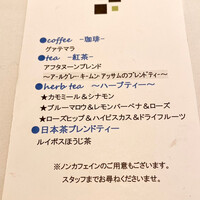 ●coffee -珈琲-
グァテマラ
●tea -紅茶-
アフタヌーンブレンド
～アールグレー キームン アッサムのブレンドティー～
●herb tea ～ハーブティー～
★カモミール＆シナモン
★ブルーマロウ＆レモンバーベナ＆ローズ
★ローズヒップ＆ハイビスカス＆ドライフルーツ
●日本茶ブレンドティー
ルイボスほうじ茶
※ノンカフェインのご用意もございます。
スタッフまでお尋ねくださいませ。